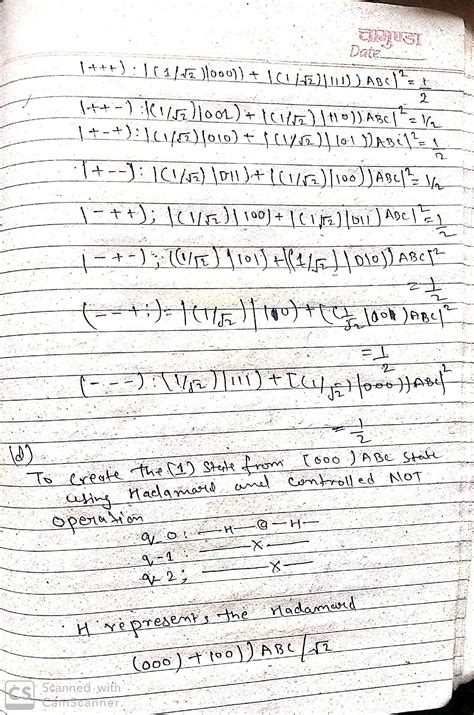 चामुण्डा
Date
|+++): |(1/√2)|000)) + |(1/√2)|111))ABC|² = 1/2
|++-): |(1/√2)|001) + |(1/√2)|110))ABC|² = 1/2
|+-+): |(1/√2)|010) + |(1/√2)|101))ABC|² = 1/2
|+--): |(1/√2)|011) + |(1/√2)|100))ABC|² = 1/2
|-++); |(1/√2)|100) + |(1/√2)|011)ABC|² = 1/2
|-+-); |(1/√2)|101) + |(1/√2)|010))ABC|²
= 1/2
(--+;) = |(1/√2)|100) + [(1/√2|001)ABC|²
= 1/2
(---): (1/√2)|111) + [(1/√2)|000))ABC|²
= 1/2
(d)
To create the (1) state from [000)ABC state
using Hadamard and controlled NOT
operation
q_0: —H—@—H—
q-1: ——X——
q-2; ——X—
H represents the Hadamard
(000) + 100))ABC/√2
CS Scanned with
CamScanner